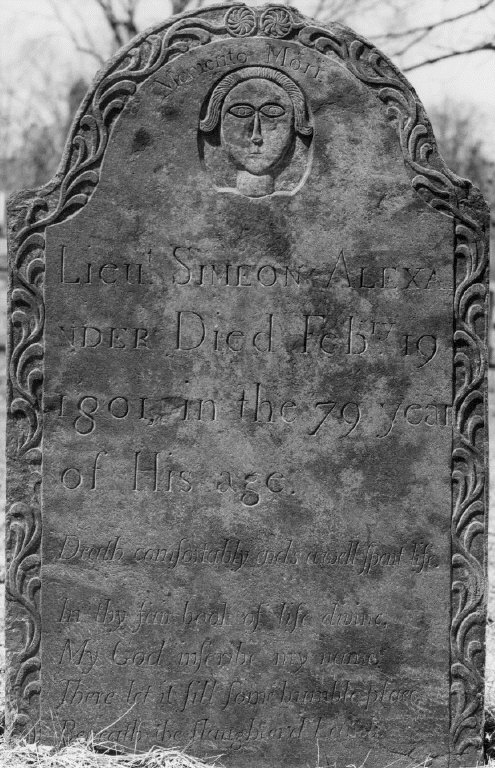 Memento Mori
Lieut SIMEON ALEXA
NDER Died Febry 19
1801, in the 79 year
of His age.
Death comfortably ends a well ſpent life
In thy fair book of life divine,
My God inſcribe my name
There let it fill ſome humble place
Beneath the ſlaughter'd Lamb